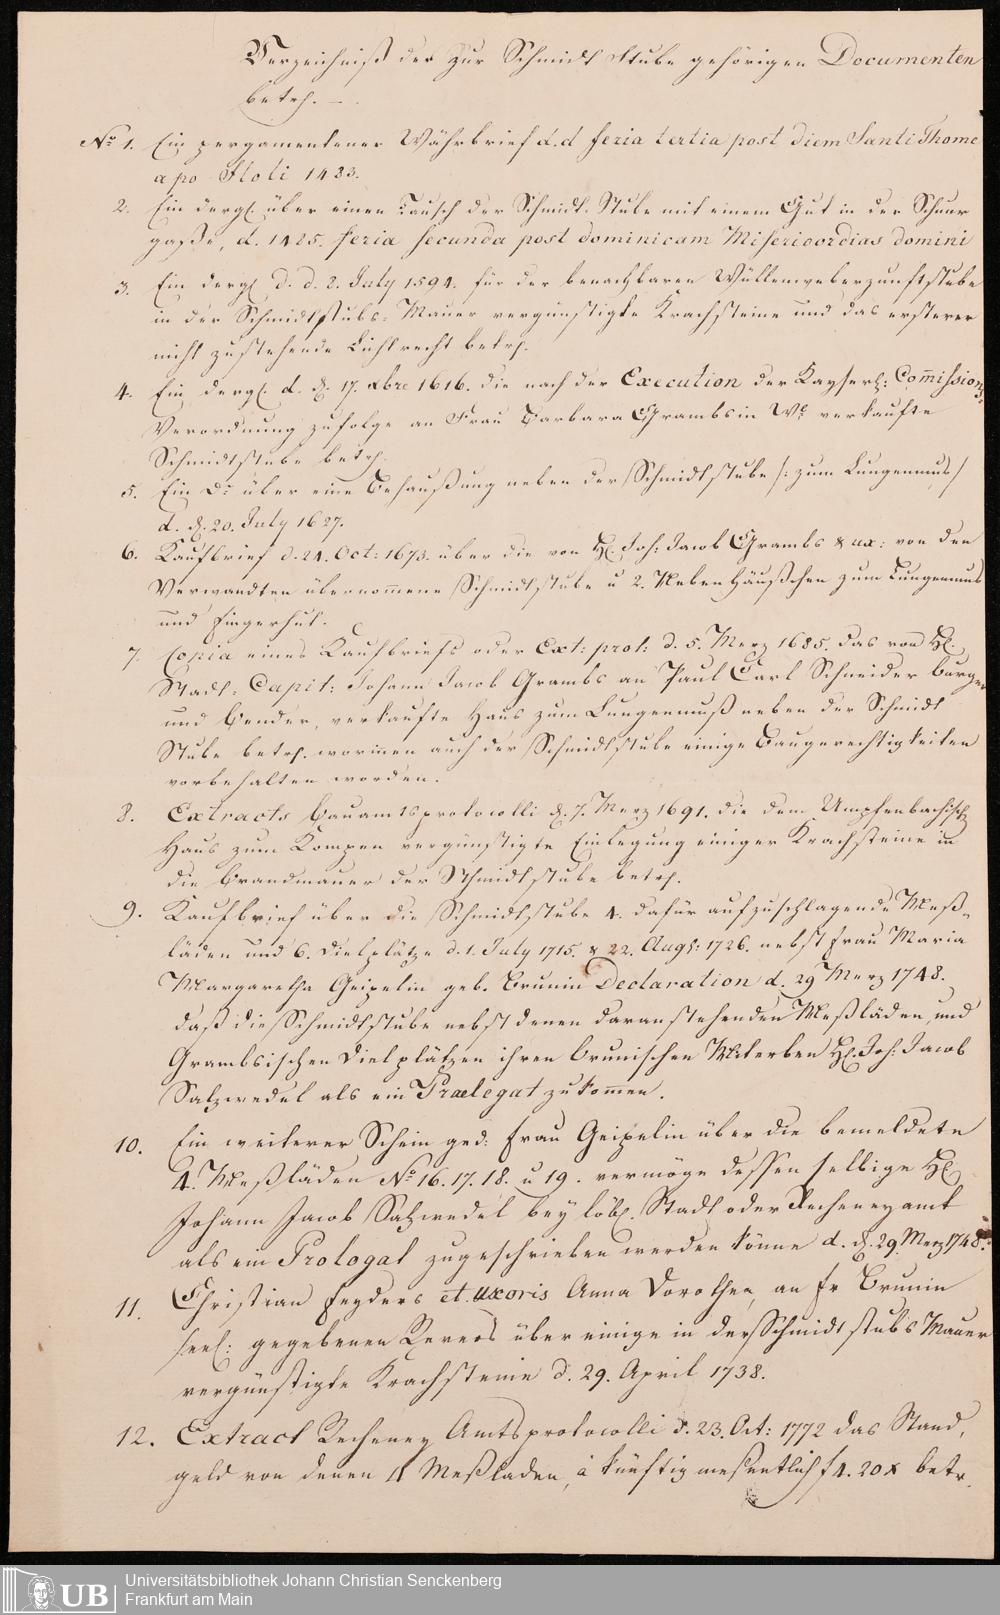 Verzeichniß der zur Schmidt Stube gehörigen Documenten
betrf. —
No 1. Ein pergamentener Währbrief d.d feria tertia post diem Santi Thome
apo Stoli 1433.
2. Ein dergl. über einen Tausch der Schmidt-Stube mit einem Gut in der Schnur
gaße, d. 1425. feria secunda post dominicam Misericordias domini
3. Ein dergl. d. d. 2. July 1594. für der benachbaren Wüllenweberzunftstube
in der Schmidtstubs-Mauer vergünstigte Krachsteine und das ersterer
nicht zustehende Lichtrecht betrf.
4. Ein dergl. d. d. 17. xbre 1616. die nach der Execution der Kayserl: Commissions
Verordnung zufolge an Frau Barbara Grambsin We verkaufte
Schmidtstube betrf.
5. Ein Do über eine Behaußung neben der Schmidtstube /: zum Lungenmus /
d. d. 20. July 1627.
6. Kaufbrief d. 24. Oct: 1673. über die von H. Joh: Jacob Grambs & ux: von den
Verwandten übernommene Schmidtstube u 2. Neben Häußchen zum Lungenmus
und Fingerhut.
7. Copia eines Kaufbriefs oder Ext: prot: d. 5. Merz 1685. das von H.
Stadt-Capit: Johann Jacob Grambs an Paul Carl Schneider burger
und Bender, verkaufte Haus zum Lungenmuß neben der Schmidt
Stube betrf. worinnen auch der Schmidtstube einige Baugerechtigkeiten
vorbehalten worden.
8. Extracts Bauamtsprotocolli d. 7. Merz 1691. die dem Umpfenbachischen
Haus zum Kompen vergünstigte Einlegung einiger Krachsteine in
die Brandmauer der Schmidtstube betrf.
9. Kaufbrief über die Schmidtstube 4. dafür aufzuschlagende Meß-
läden und 6. Dielplätze d. 1. July 1715. & 22. Augs: 1726. nebst Frau Maria
Margaretha Geipelin geb. Brunin Declaration d. 29 Merz 1748.
daß die Schmidtstube nebst denen daranstehenden Meßläden, und
Grambsischen Dielplätzen ihren brunischen Miterben H. Joh: Jacob
Salzwedel als ein Praelegat zukommen.
10. Ein weiterer Schein ged: Frau Geipelin über die bemeldete
4. Meßläden No 16. 17. 18. u 19. vermöge dessen selbige H.
Johann Jacob Salzwedel bey löbl. Stadt oder Recheneyamt
als ein Prologat zugeschrieben werden könne d. d. 29. Merz 1748.
11. Christian Feyders et uxoris Anna Dorothea, an fr Brunin
seel: gegebenen Revers über einige in der Schmidt stubs Mauer
vergünstigte Krachsteine d. 29. April 1738.
12. Extract Recheney Amtsprotocolli d. 23. Oct: 1772 das Stand,
geld von denen 4 Meßladen, à künftig meßentlich f 4. 20 x betr.
UB
Universitätsbibliothek Johann Christian Senckenberg
Frankfurt am Main